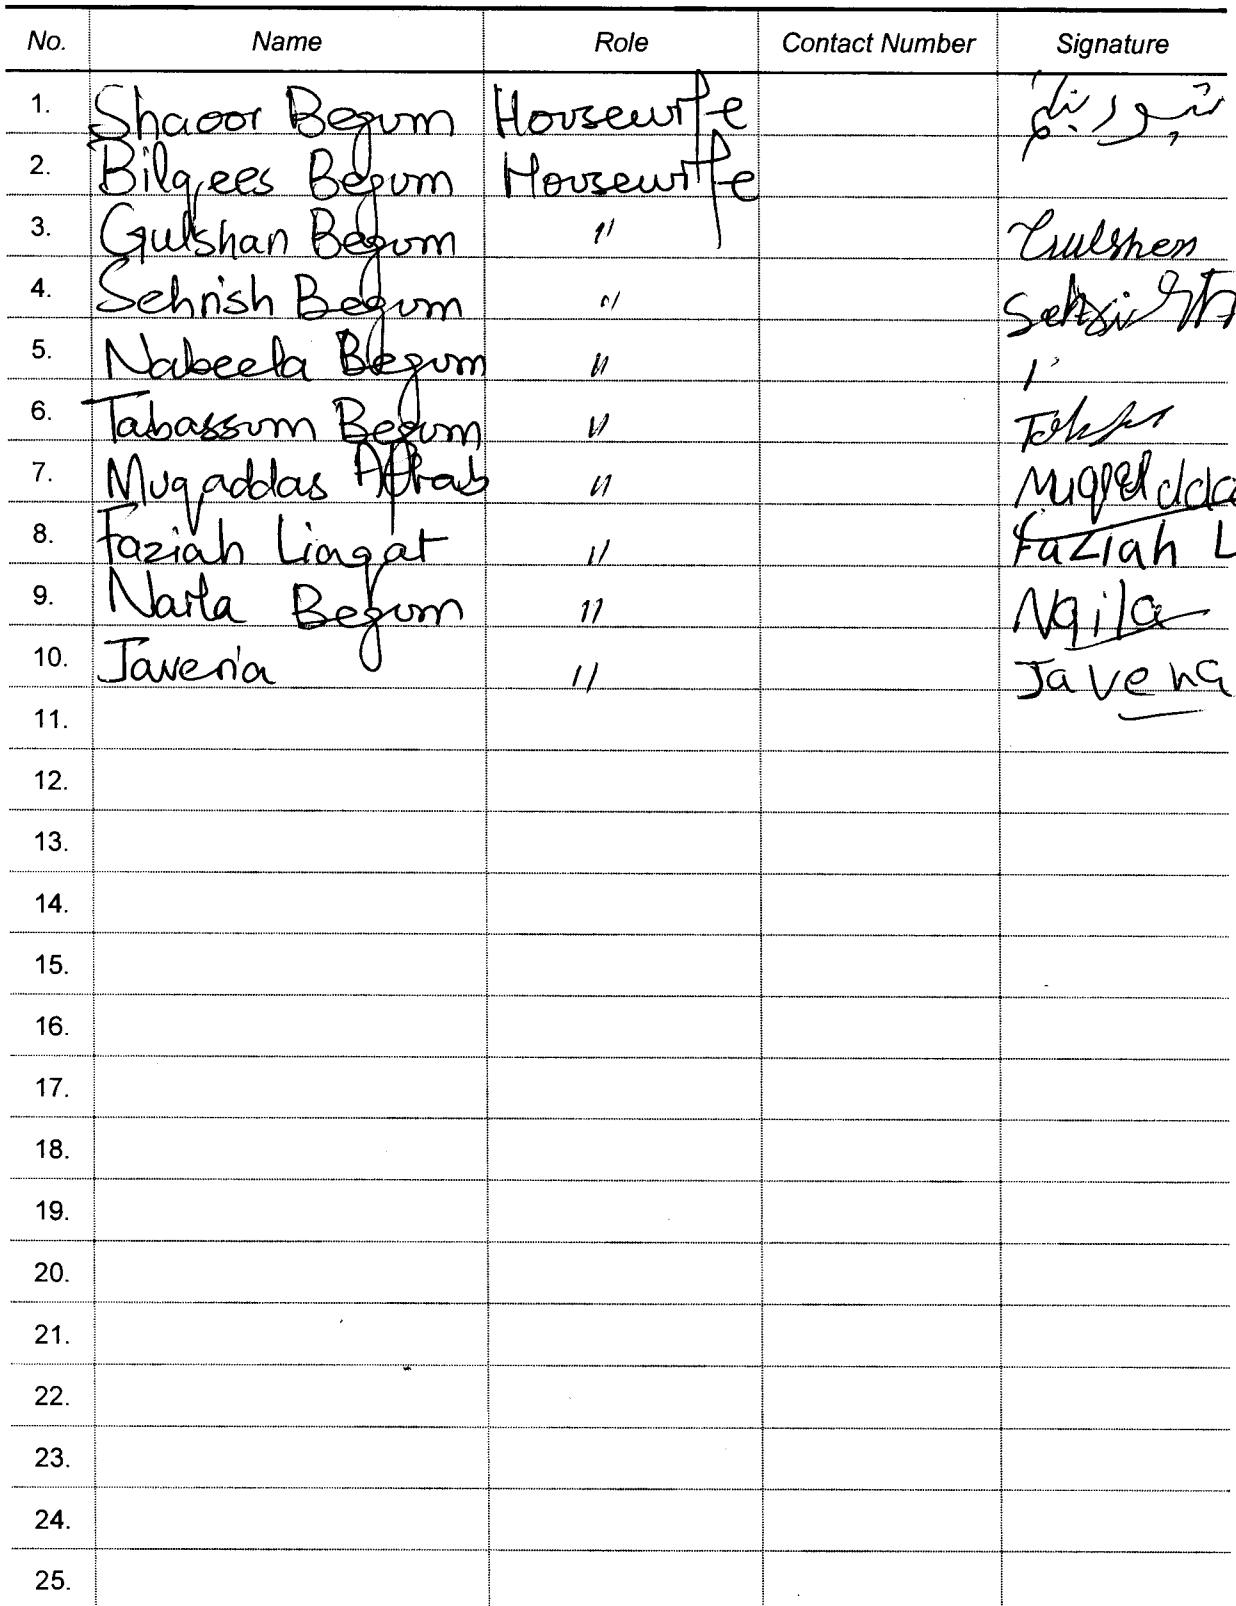 No. Name Role Contact Number Signature
1. Shaoor Begum Housewife
2. Bilqees Begum Housewife
3. Gulshan Begum " Gulshen
4. Sehrish Begum "
5. Nabeela Begum "
6. Tabassum Begum "
7. Muqaddas Aftab "
8. Faziah Liaqat " Faziah L
9. Naila Begum " Naila
10. Javeria "
11.
12.
13.
14.
15.
16.
17.
18.
19.
20.
21.
22.
23.
24.
25.